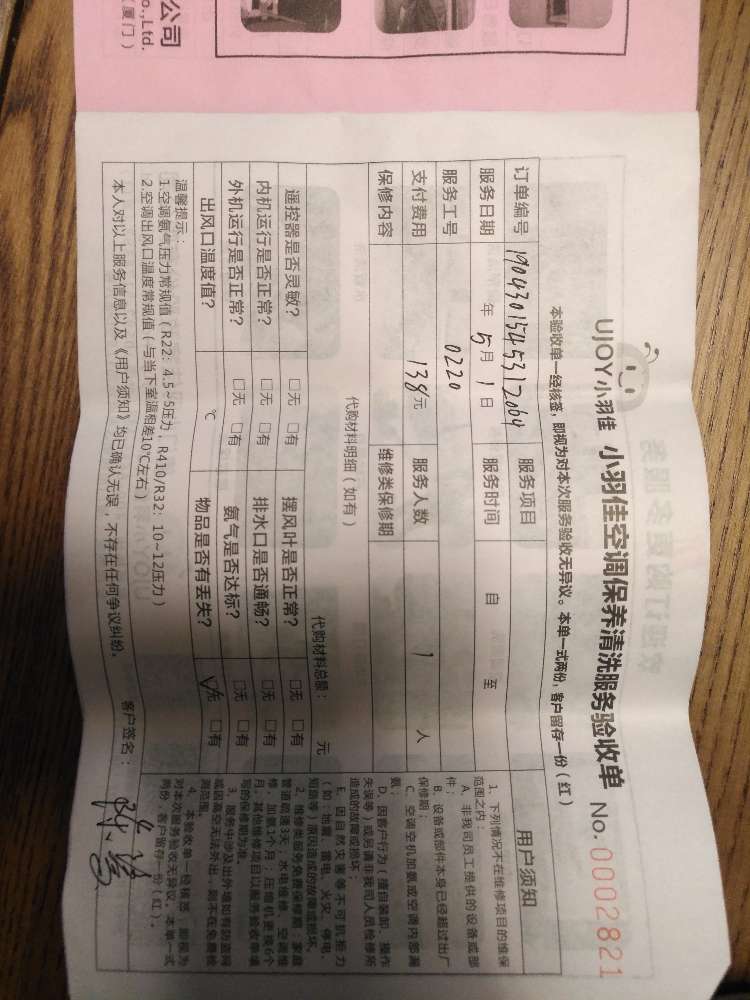 公司
o.,Ltd.
厦门）
UJOY小羽佳 小羽佳空调保养清洗服务验收单 No.0002821
本验收单一经核签，即视为对本次服务验收无异议。本单一式两份，客户留存一份（红）
订单编号 190430154531 2064 服务项目
服务日期 年 5月 1日 服务时间 自 至
服务工号 0220
支付费用 138元 服务人数 1 人
保修内容 维修类保修期
代购材料明细（如有） 代购材料总额： 元
遥控器是否灵敏？ □无 □有 摆风叶是否正常？ □无 □有
内机运行是否正常？ □无 □有 排水口是否通畅？ □无 □有
外机运行是否正常？ □无 □有 氨气是否达标？ □无 □有
出风口温度值？ ℃ 物品是否有丢失？ ☑无 □有
温馨提示：
1.空调氨气压力常规值（R22：4.5~5压力，R410/R32：10~12压力）
2.空调出风口温度常规值（与当下室温相差10℃左右）
本人对以上服务信息以及《用户须知》均已确认无误，不存在任何争议纠纷。 客户签名：
用户须知
1、下列情况不在维修项目的维保
范围之内：
A、非我司员工提供的设备或部
件；
B、设备或部件本身已经超过出厂
保修期；
C、空调空机加氨或空调内部漏
氨；
D、因客户行为（擅自装卸、操作
失误等）或另请非我司人员检修所
造成的故障或损坏；
E、因自然灾害等不可抗拒力
（如：地震、雷电、火灾、停电、
短路等）原因造成的故障或损坏。
2、维修类服务免费保修期：家庭
管道疏通3天；水电维修、空调维
修、加氨1个月；压缩机更换6个
月；其他维修项目以服务验收单填
写的保修期为准。
3、服务中涉及出外墙如有防盗网
或因高空无法外出，则不在免费检
测范围。
4、本验收单一经核签，即视为
对本次服务验收无异议。本单一式
两份，客户留存一份（红）。